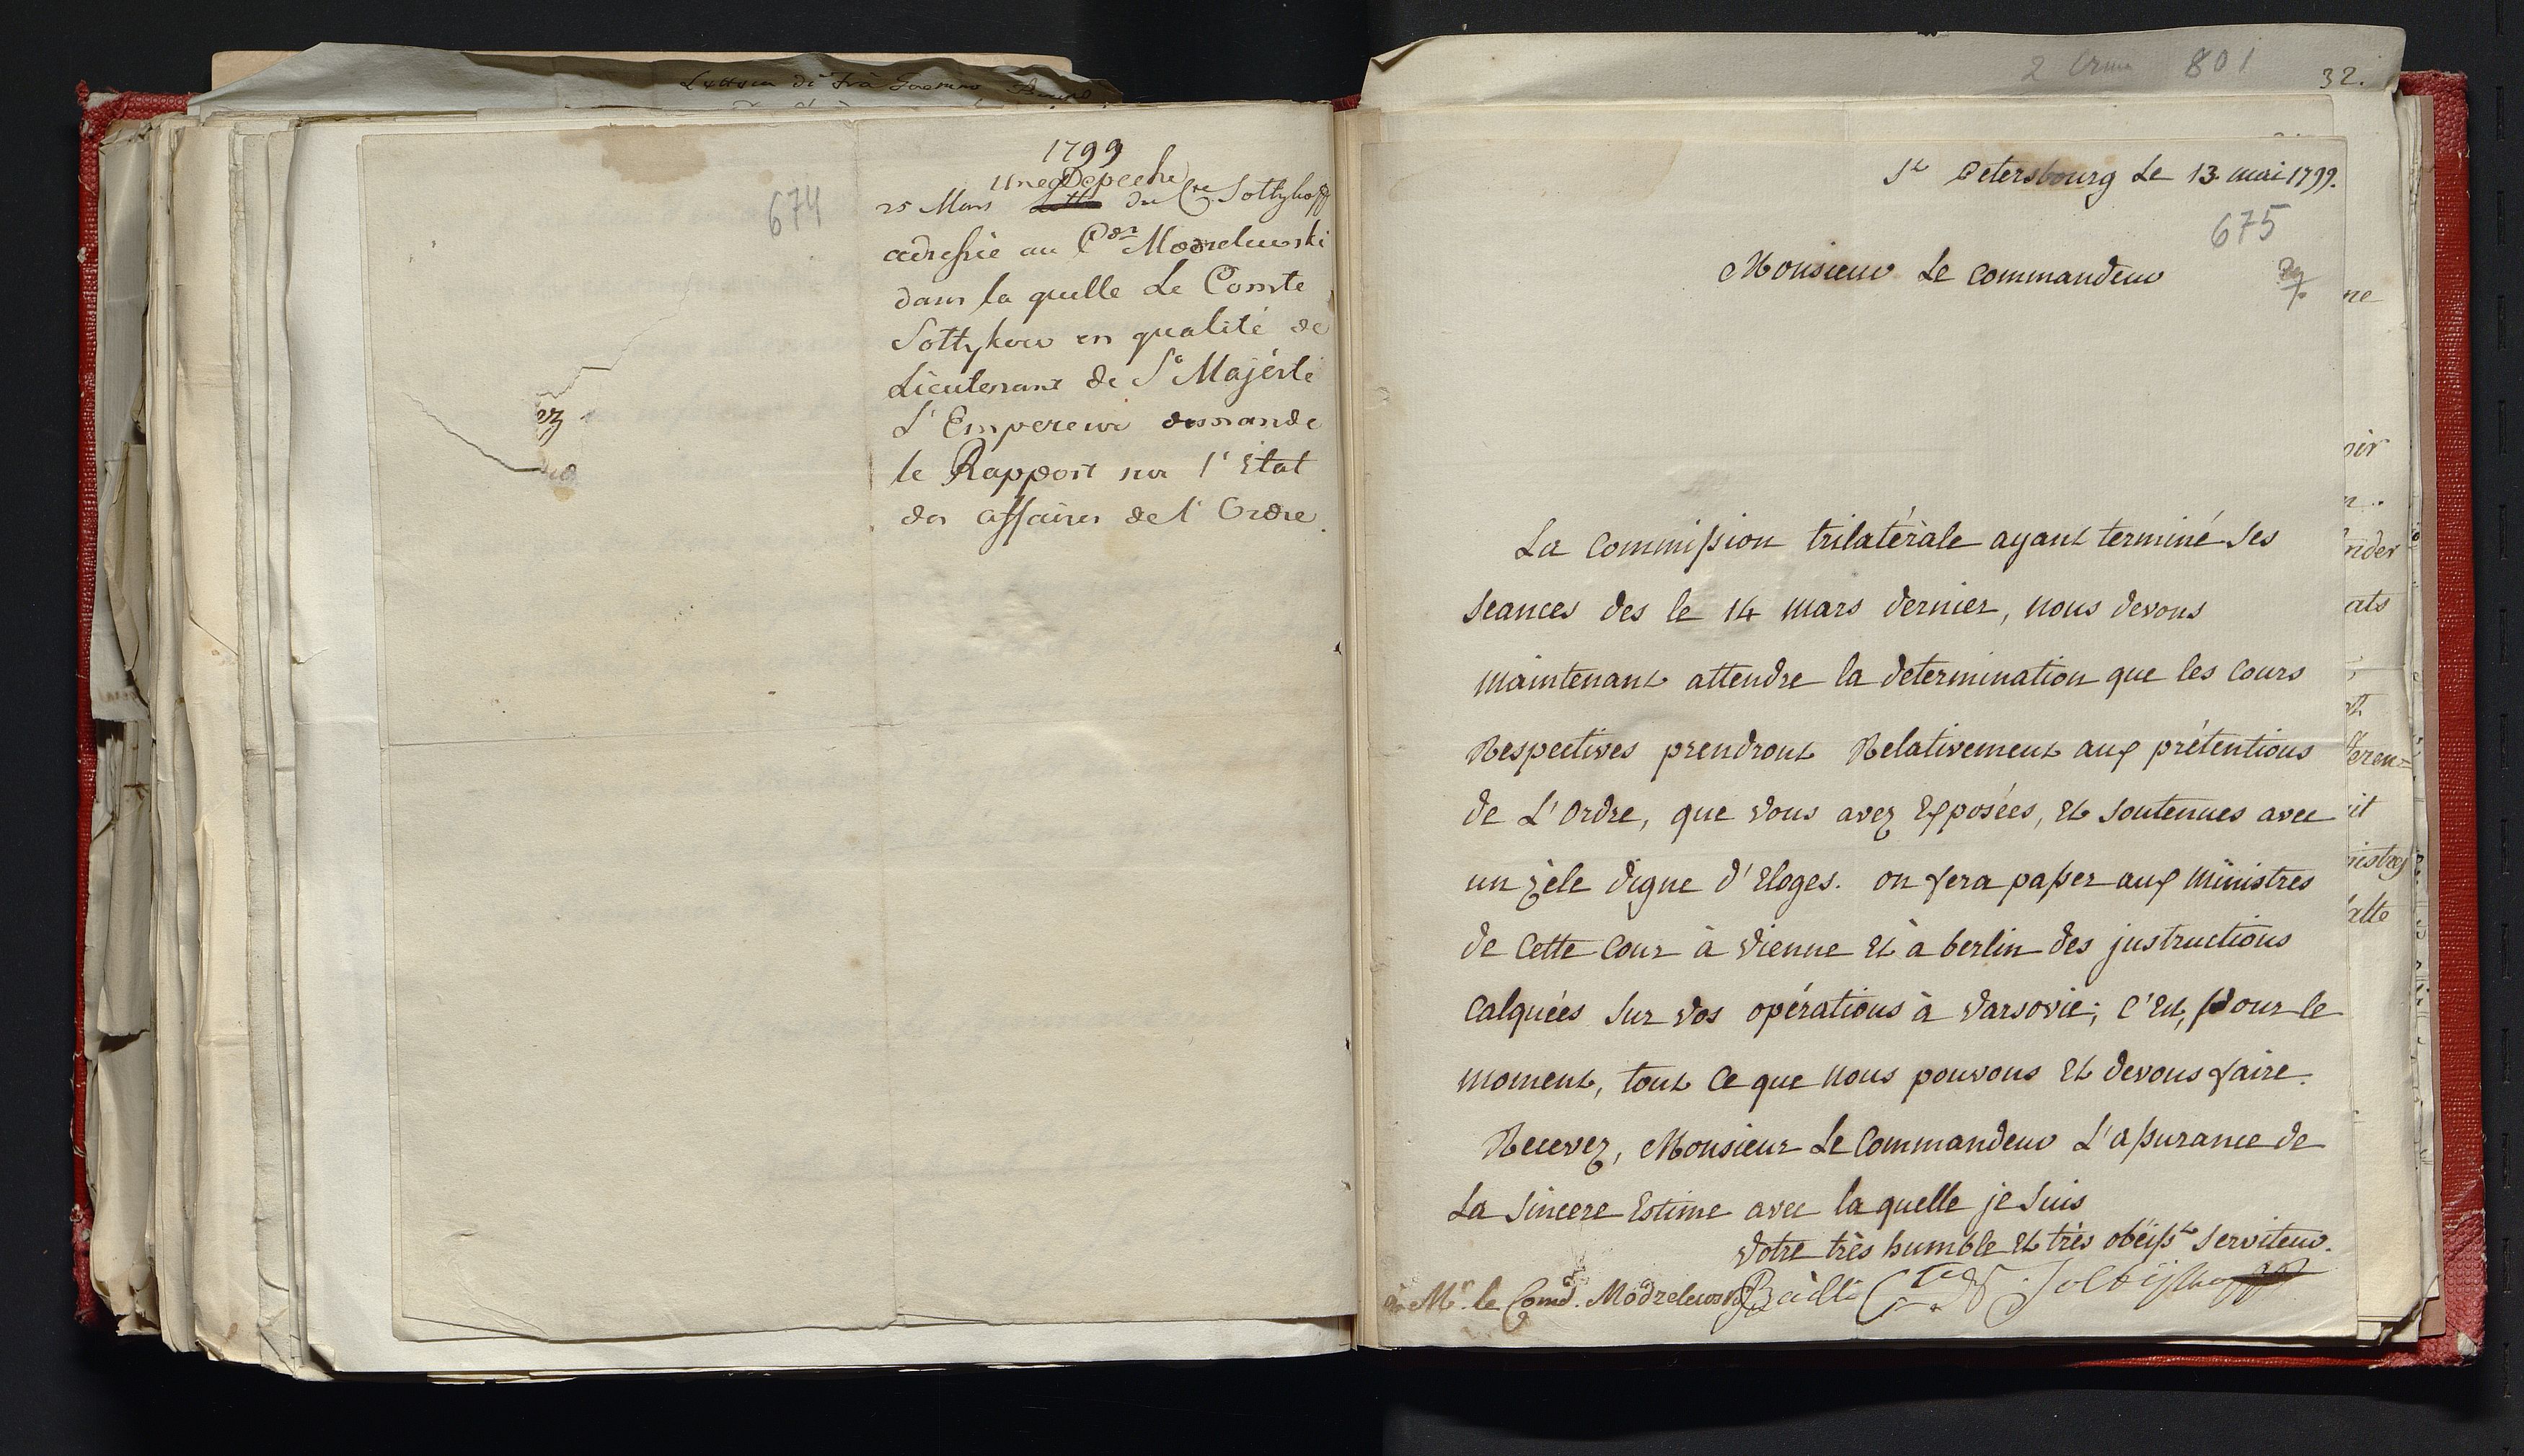 Lettera di Frà
1799
674
Une Depeche
25 Mars du Cte Soltykoff
adressée au Cdr Modzelewski
dans la quelle Le Comte
Sottykow en qualité de
Lieutenant de Se Majésté
L'Empereur demande
le Rapport sur l'Etat
des affaires de l'Ordre.
2 801
32.
St Petersbourg Le 13 mai 1799.
675
Monsieur Le Commandeur
La Commission trilatérale ayant terminé Ses
Seances des le 14 mars dernier, nous devons
maintenant attendre la determination que les Cours
Respectives prendront Relativement aux prétentions
de L'Ordre, que vous avez Exposées, Et Soutenues avec
un zèle digne d'Eloges. on fera passer aux Ministres
de Cette Cour à Vienne Et à berlin des instructions
Calquées Sur vos opérations à Varsovie; C'Est, pour le
moment, tout Ce que nous pouvons Et devons faire.
Recevez, Monsieur Le Commandeur L'assurance de
La Sincere Estime avec la quelle je Suis
Votre très humble Et très obéisst Serviteur.
à Mr. le Comd. Modzelewski Bailli Cte de Soltijkoff